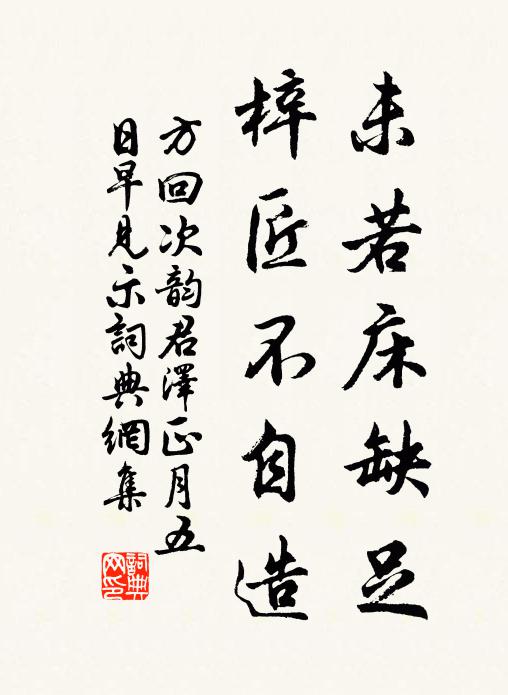 未若床缺足
梓匠不自造
方回次韵君澤正月五
日早見示詞典網集
詞典網印